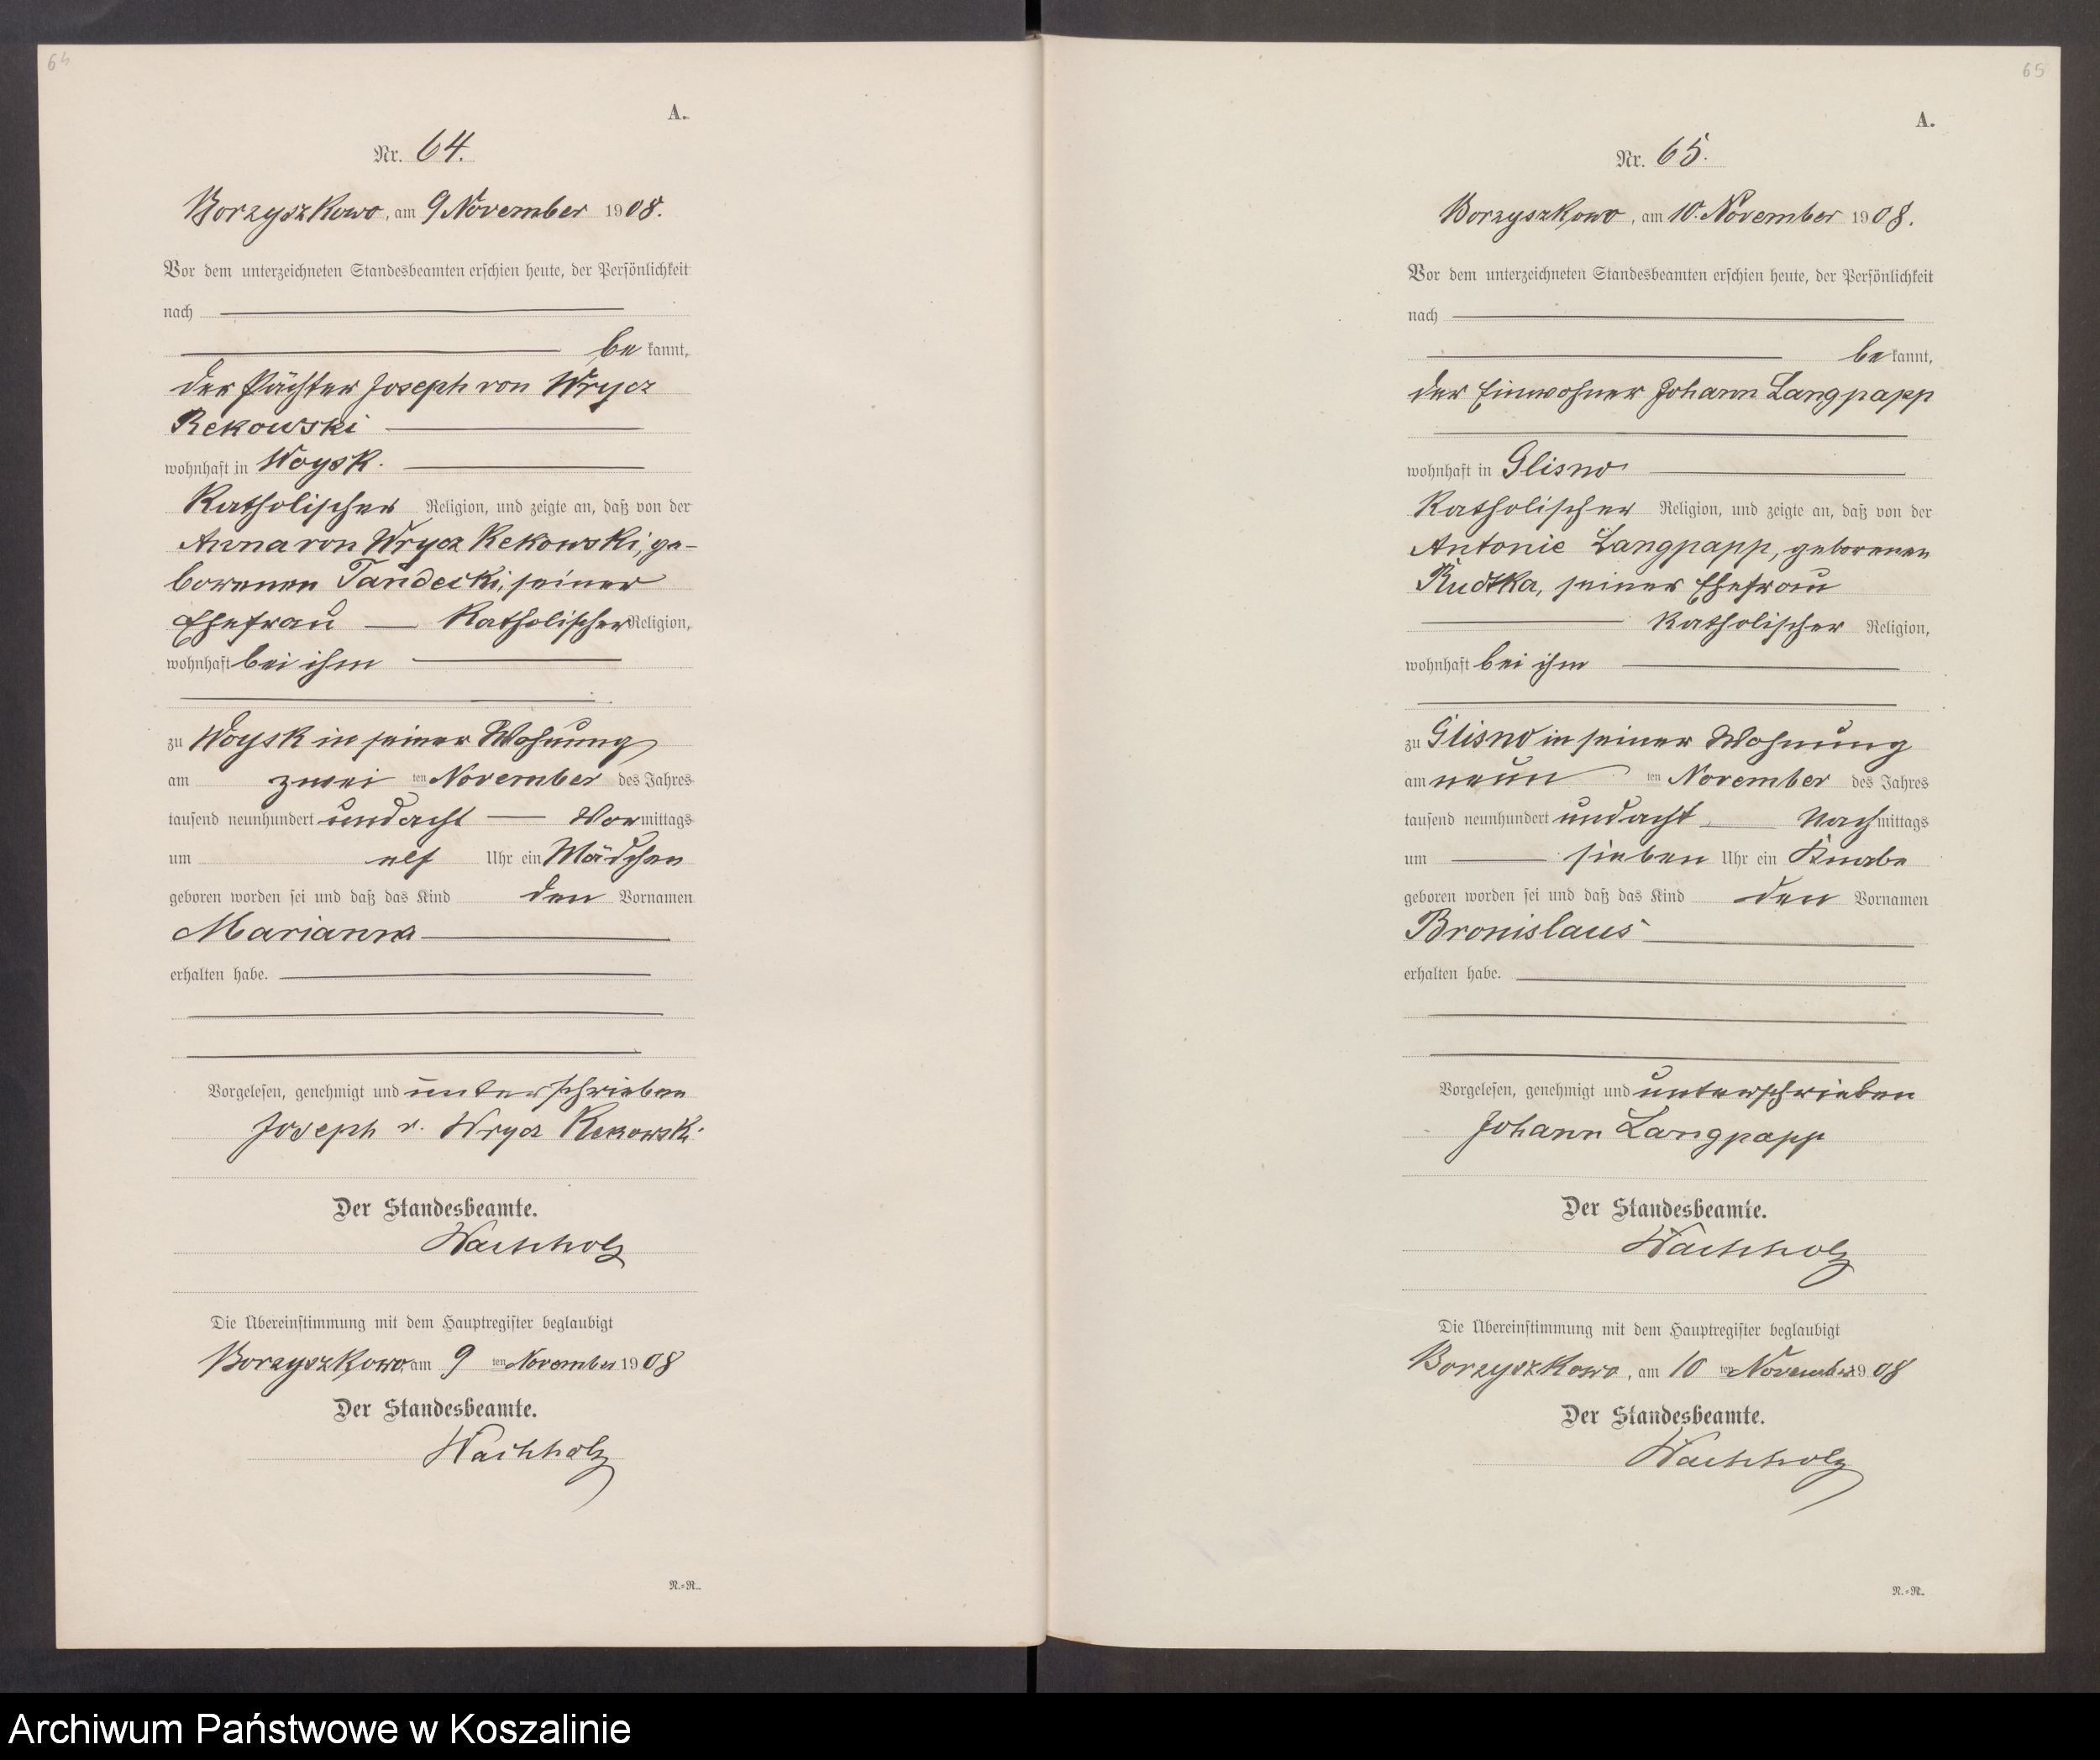 64
A.
Nr. 64.
Borzyszkowo, am 9 November 1908.
Vor dem unterzeichneten Standesbeamten erschien heute, der Persönlichkeit
nach
bekannt,
der Pächter Joseph von Wrycz
Rekowski
wohnhaft in Woysk.
Katholischer Religion, und zeigte an, daß von der
Anna von Wrycz Rekowski, ge-
borenen Tandecki, seiner
Ehefrau — Katholischer Religion,
wohnhaft bei ihm
zu Woysk in seiner Wohnung
am zwei ten November des Jahres
tausend neunhundert undacht — Vormittags
um elf Uhr ein Mädchen
geboren worden sei und daß das Kind den Vornamen
Marianna
erhalten habe.
Vorgelesen, genehmigt und unterschrieben
Joseph v. Wrycz Rekowski
Der Standesbeamte.
Wachholz
Die Übereinstimmung mit dem Hauptregister beglaubigt
Borzyszkowo, am 9 ten November 1908
Der Standesbeamte.
Wachholz
N.=R.
65
A.
Nr. 65.
Borzyszkowo, am 10. November 1908.
Vor dem unterzeichneten Standesbeamten erschien heute, der Persönlichkeit
nach
bekannt,
der Einwohner Johann Langpapp
wohnhaft in Glisno
Katholischer Religion, und zeigte an, daß von der
Antonie Langpapp, geborenen
Rudtka, seiner Ehefrau
Katholischer Religion,
wohnhaft bei ihm
zu Glisno in seiner Wohnung
am neun ten November des Jahres
tausend neunhundert undacht — Nachmittags
um — sieben Uhr ein Knabe
geboren worden sei und daß das Kind den Vornamen
Bronislaus
erhalten habe.
Vorgelesen, genehmigt und unterschrieben
Johann Langpapp
Der Standesbeamte.
Wachholz
Die Übereinstimmung mit dem Hauptregister beglaubigt
Borzyszkowo, am 10 ten November 1908
Der Standesbeamte.
Wachholz
N.=R.
Archiwum Państwowe w Koszalinie